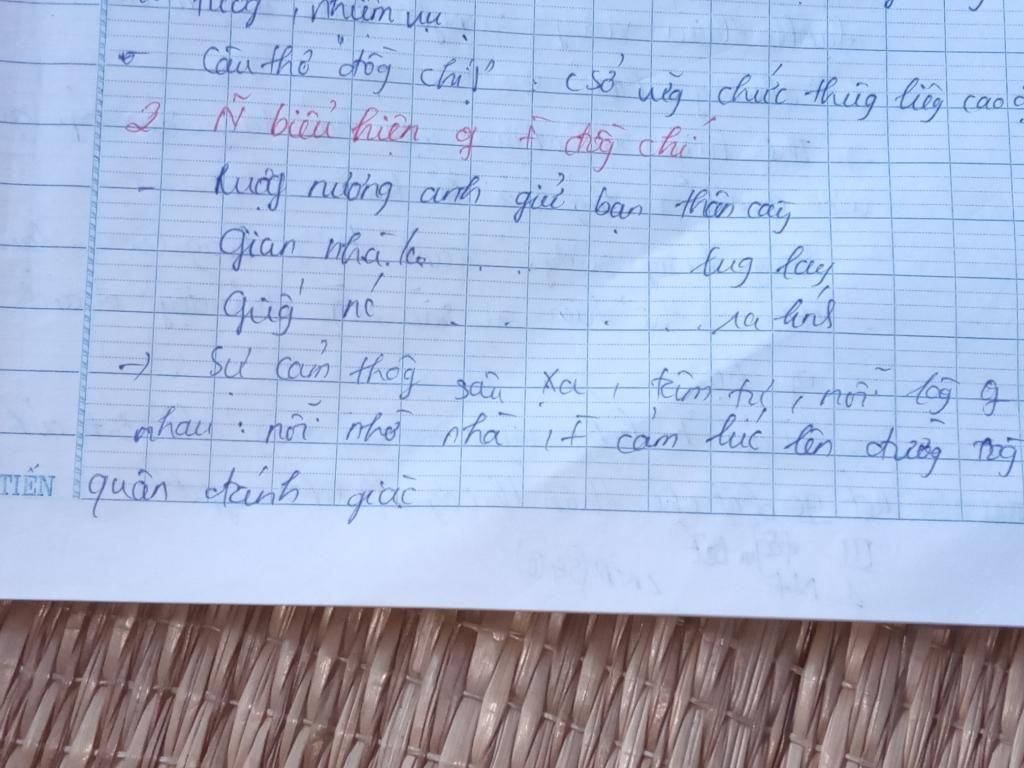 , nhiệm vụ :
- Câu thơ "đồg chí!" . (sở
uêg chức thũg liêg cao
2 Ñ biểu hiện g f đồg chí
- Ruộg nương anh gửi bạn thân cày
Gian nhà k . . . lug lay
Giếg nc . . . . . ra lính
→ Sự cảm thôg sâu xa, tâm tư, nỗi lòg g
nhau : nỗi nhớ nhà, f cảm lúc lên đườg
TIẾN
quân đánh giặc